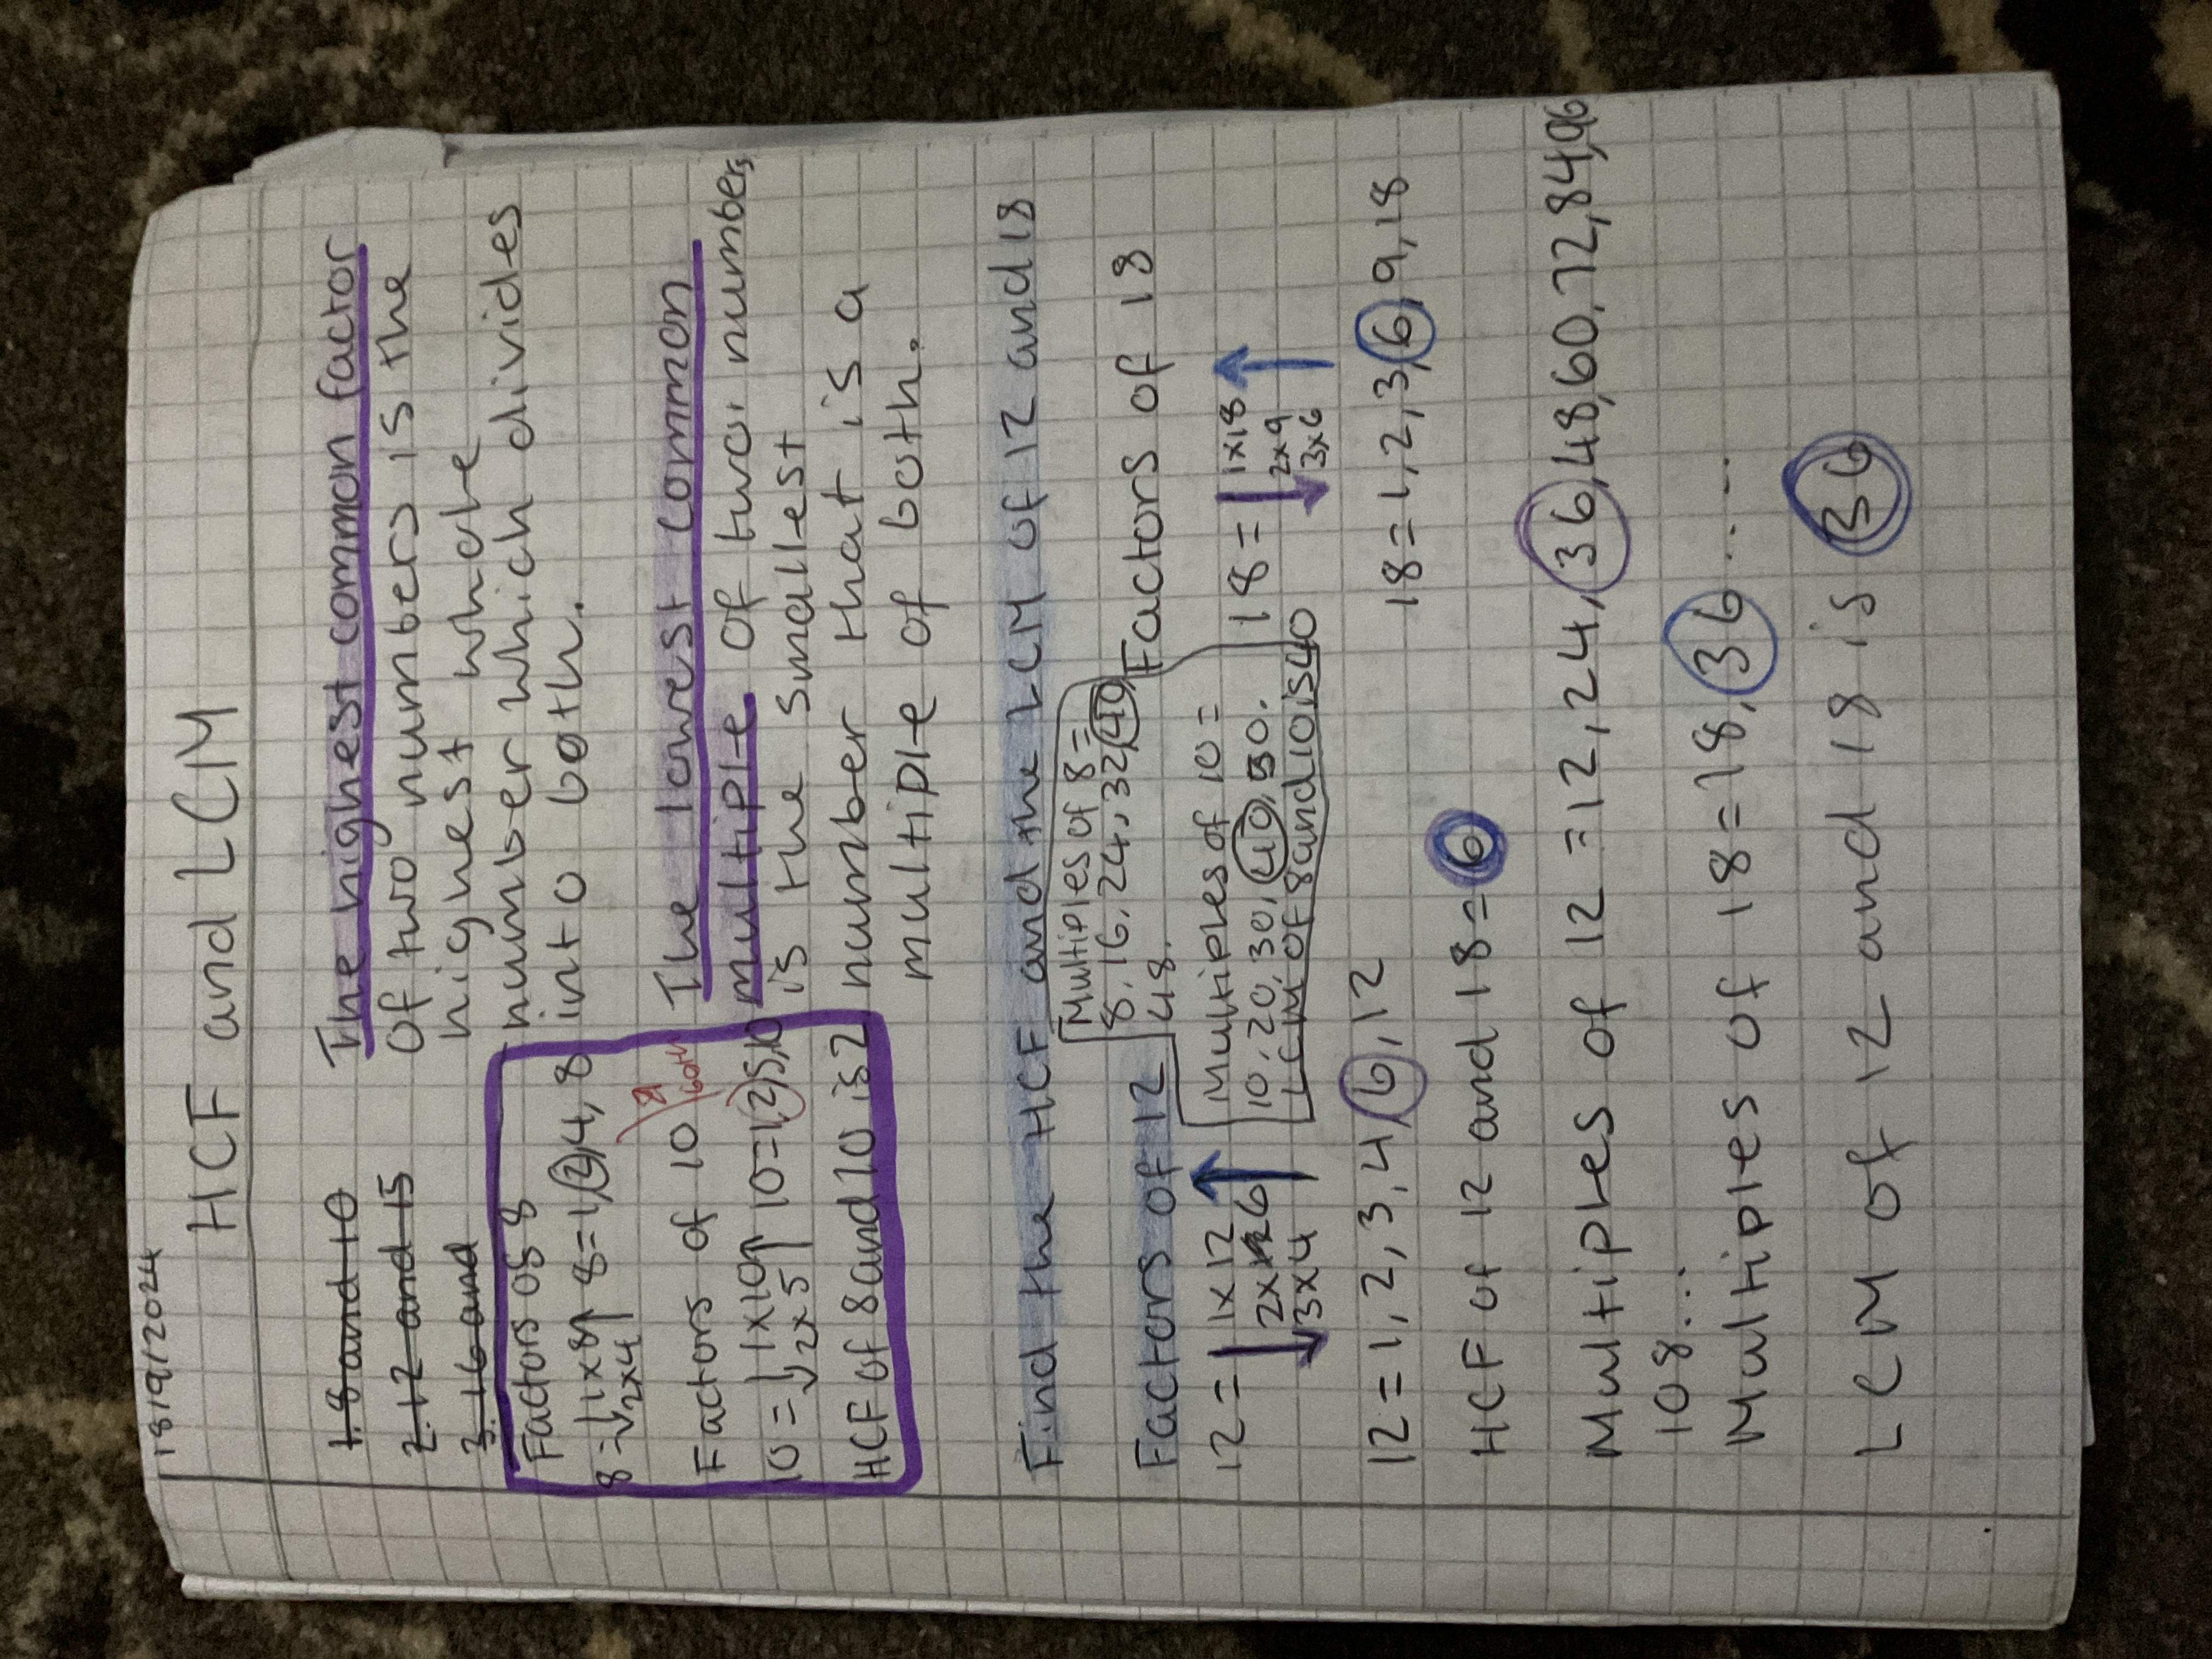 18/9/2024
HCF and LCM
1. 8 and 10
2. 12 and 15
3. 16 and
The highest common factor
of two numbers is the
highest whole
number which divides
into both.
Factors of 8
8 = 1x8 8=1,2,4,8
2x4
Factors of 10
10 = 1x10 10=1,2,5,10
2x5
HCF of 8 and 10 is 2
The lowest common
multiple of two numbers
is the smallest
number that is a
multiple of both.
Find the HCF and the LCM of 12 and 18
Factors of 12
12 = 1x12
2x6
3x4
Multiples of 8=
8,16,24,32,40
48.
Multiples of 10=
10,20,30,40,50.
LCM OF 8 and 10 is 40
Factors of 18
18 = 1x18
2x9
3x6
12=1,2,3,4,6,12
18=1,2,3,6,9,18
HCF of 12 and 18=6
Multiples of 12 =12,24,36,48,60,72,84,96
108...
Multiples of 18=18,36.....
LCM of 12 and 18 is 36